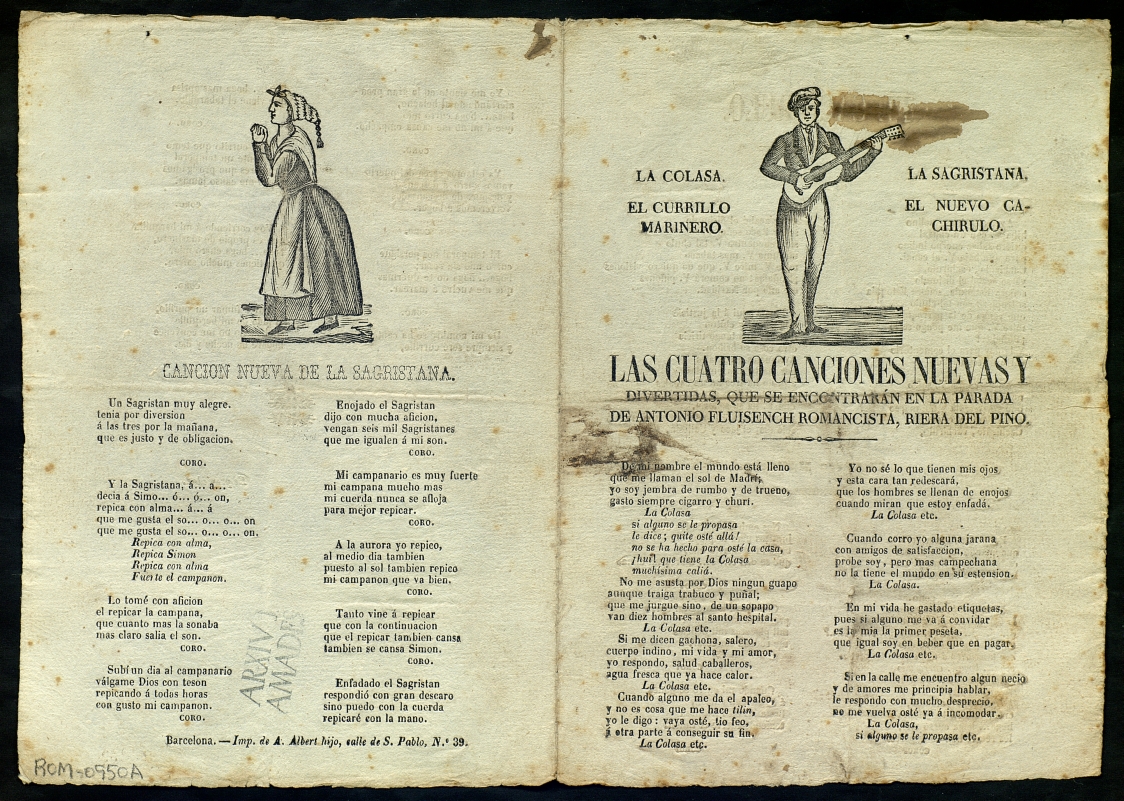 CANCION NUEVA DE LA SAGRISTANA.
Un Sagristan muy alegre.
tenia por diversion
á las tres por la mañana,
que es justo y de obligacion.
CORO.
Y la Sagristana, á... a...
decia á Simo... ó... ó... on,
repica con alma... á... á
que me gusta el so... o... o... on
que me gusta el so... o... o... on.
Repica con alma,
Repica Simon
Repica con alma
Fuerte el campanon.
Lo tomé con aficion
el repicar la campana,
que cuanto mas la sonaba
mas claro salia el son.
CORO.
Subí un dia al campanario
válgame Dios con teson
repicando á todas horas
con gusto mi campanon.
CORO.
Enojado el Sagristan
dijo con mucha aficion,
vengan seis mil Sagristanes
que me igualen á mi son.
CORO.
Mi campanario es muy fuerte
mi campana mucho mas
mi cuerda nunca se afloja
para mejor repicar.
CORO.
A la aurora yo repico,
al medio dia tambien
puesto al sol tambien repico
mi campanon que va bien.
CORO.
Tanto vine á repicar
que con la continuacion
que el repicar tambien cansa
tambien se cansa Simon.
CORO.
Enfadado el Sagristan
respondió con gran descaro
sino puedo con la cuerda
repicaré con la mano.
Barcelona.—Imp. de A. Albert hijo, calle de S. Pablo, N.º 39.
ARXIU
AMADES
ROM-0950A
LA COLASA.
EL CURRILLO
MARINERO.
LA SAGRISTANA.
EL NUEVO CA-
CHIRULO.
LAS CUATRO CANCIONES NUEVAS Y
DIVERTIDAS, QUE SE ENCONTRARÁN EN LA PARADA
DE ANTONIO FLUISENCH ROMANCISTA, RIERA DEL PINO.
De mi nombre el mundo está lleno
que me llaman el sol de Madri;
yo soy jembra de rumbo y de trueno,
gasto siempre cigarro y churí.
La Colasa
si alguno se le propasa
le dice; quite osté allá!
no se ha hecho para osté la casa,
¡hui! que tiene la Colasa
muchísima caliá.
No me asusta por Dios ningun guapo
aunque traiga trabuco y puñal;
que me jurgue sino, de un sopapo
van diez hombres al santo hespital.
La Colasa etc.
Si me dicen gachona, salero,
cuerpo indino, mi vida y mi amor,
yo respondo, salud caballeros,
agua fresca que ya hace calor.
La Colasa etc.
Cuando alguno me da el apaleo,
y no es cosa que me hace tilin,
yo le digo: vaya osté, tio feo,
á otra parte á conseguir su fin.
La Colasa etc.
Yo no sé lo que tienen mis ojos
y esta cara tan redescará,
que los hombres se llenan de enojos
cuando miran que estoy enfadá.
La Colasa etc.
Cuando corro yo alguna jarana
con amigos de satisfaccion,
probe soy, pero mas campechana
no la tiene el mundo en su estension.
La Colasa.
En mi vida he gastado etiquetas,
pues si alguno me va á convidar
es la mia la primer peseta,
que igual soy en beber que en pagar.
La Colasa etc.
Si en la calle me encuentro algun necio
y de amores me principia hablar,
le respondo con mucho desprecio,
no me vuelva osté ya á incomodar.
La Colasa,
si alguno se le propasa etc.